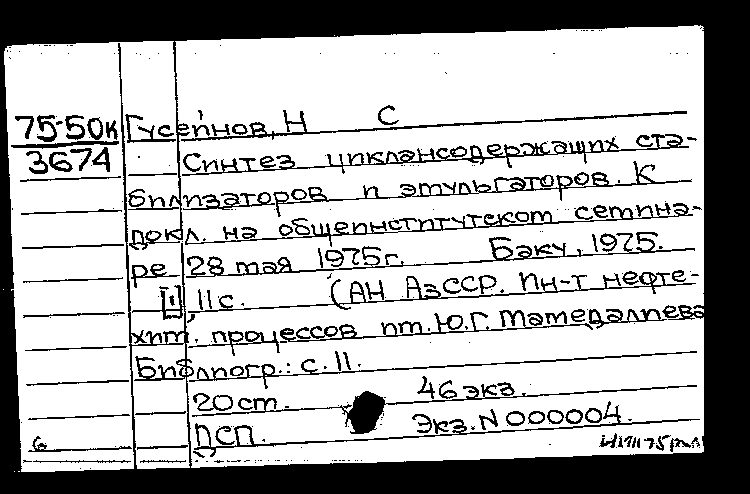 75-50к Гусейнов, Н С
3674 Синтез циклансодержащих ста-
билизаторов и эмульгаторов. К
докл. на общеинститутском семина-
ре 28 мая 1975г. Баку, 1975.
[1], 11 с. (АН АзССР. Ин-т нефте-
хим. процессов им. Ю.Г. Мамедалиева
Библиогр.: с. 11.
20 см. 46 экз.
ДСП. Экз. N 000004.
6